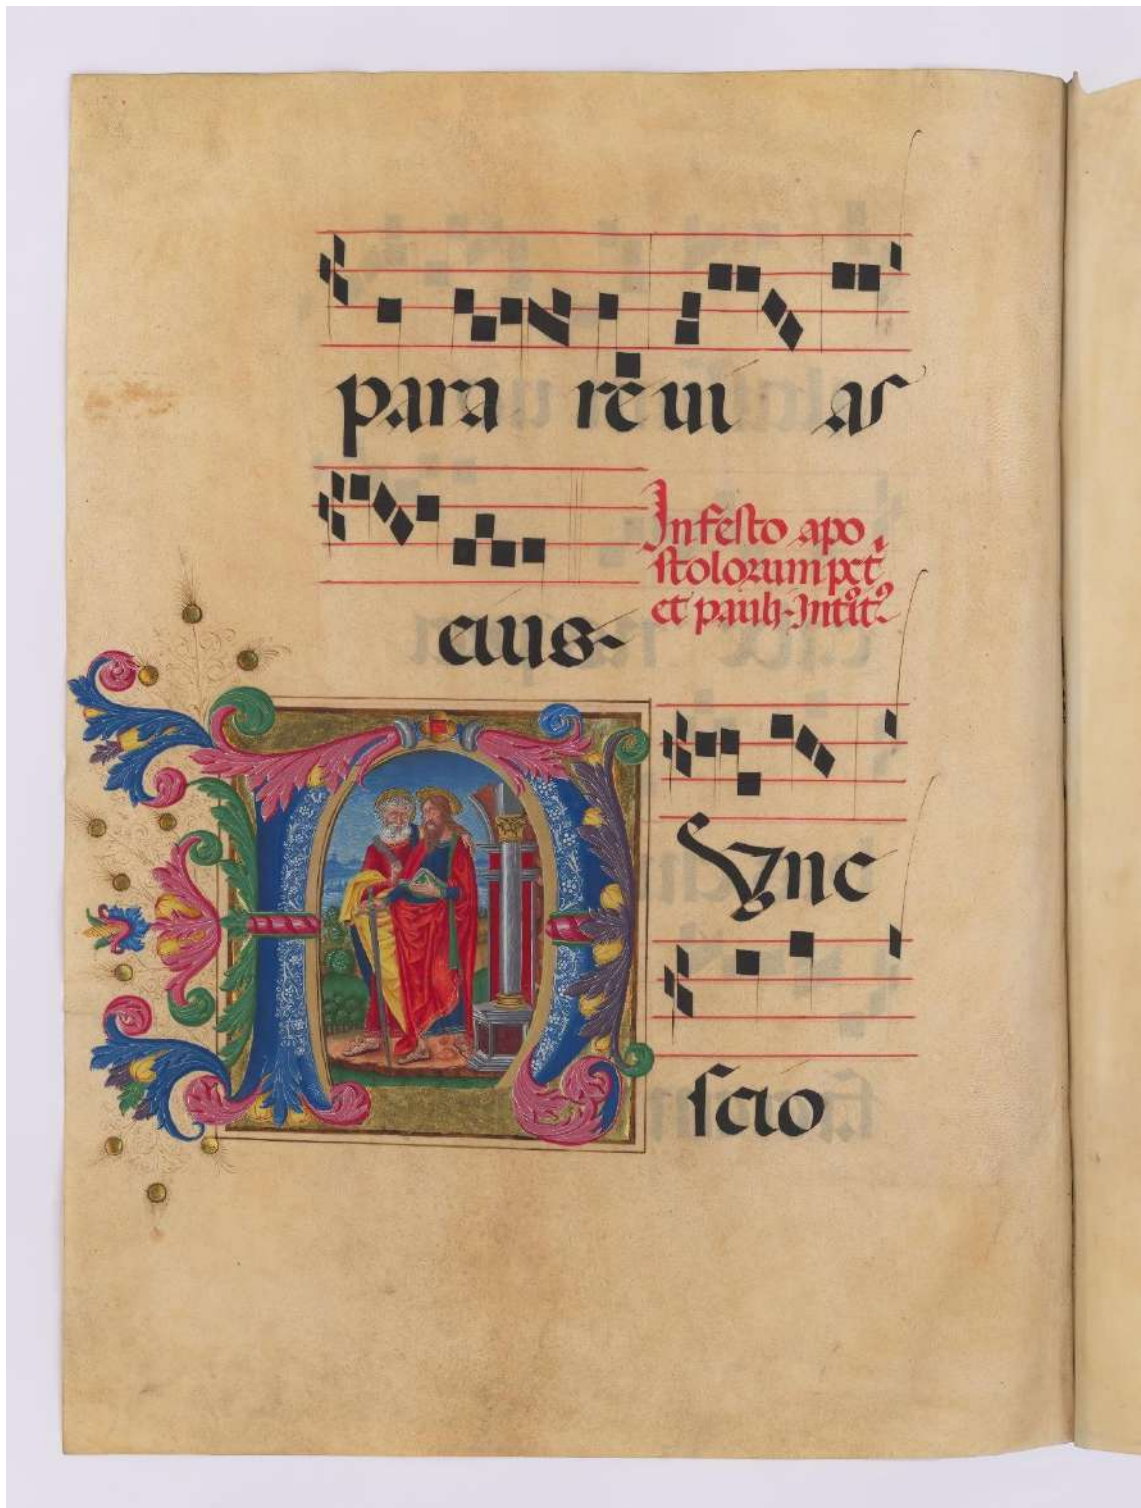 para re vi as
eius
In festo apo
stolorum pet
et pauli Introit
NVnc
scio